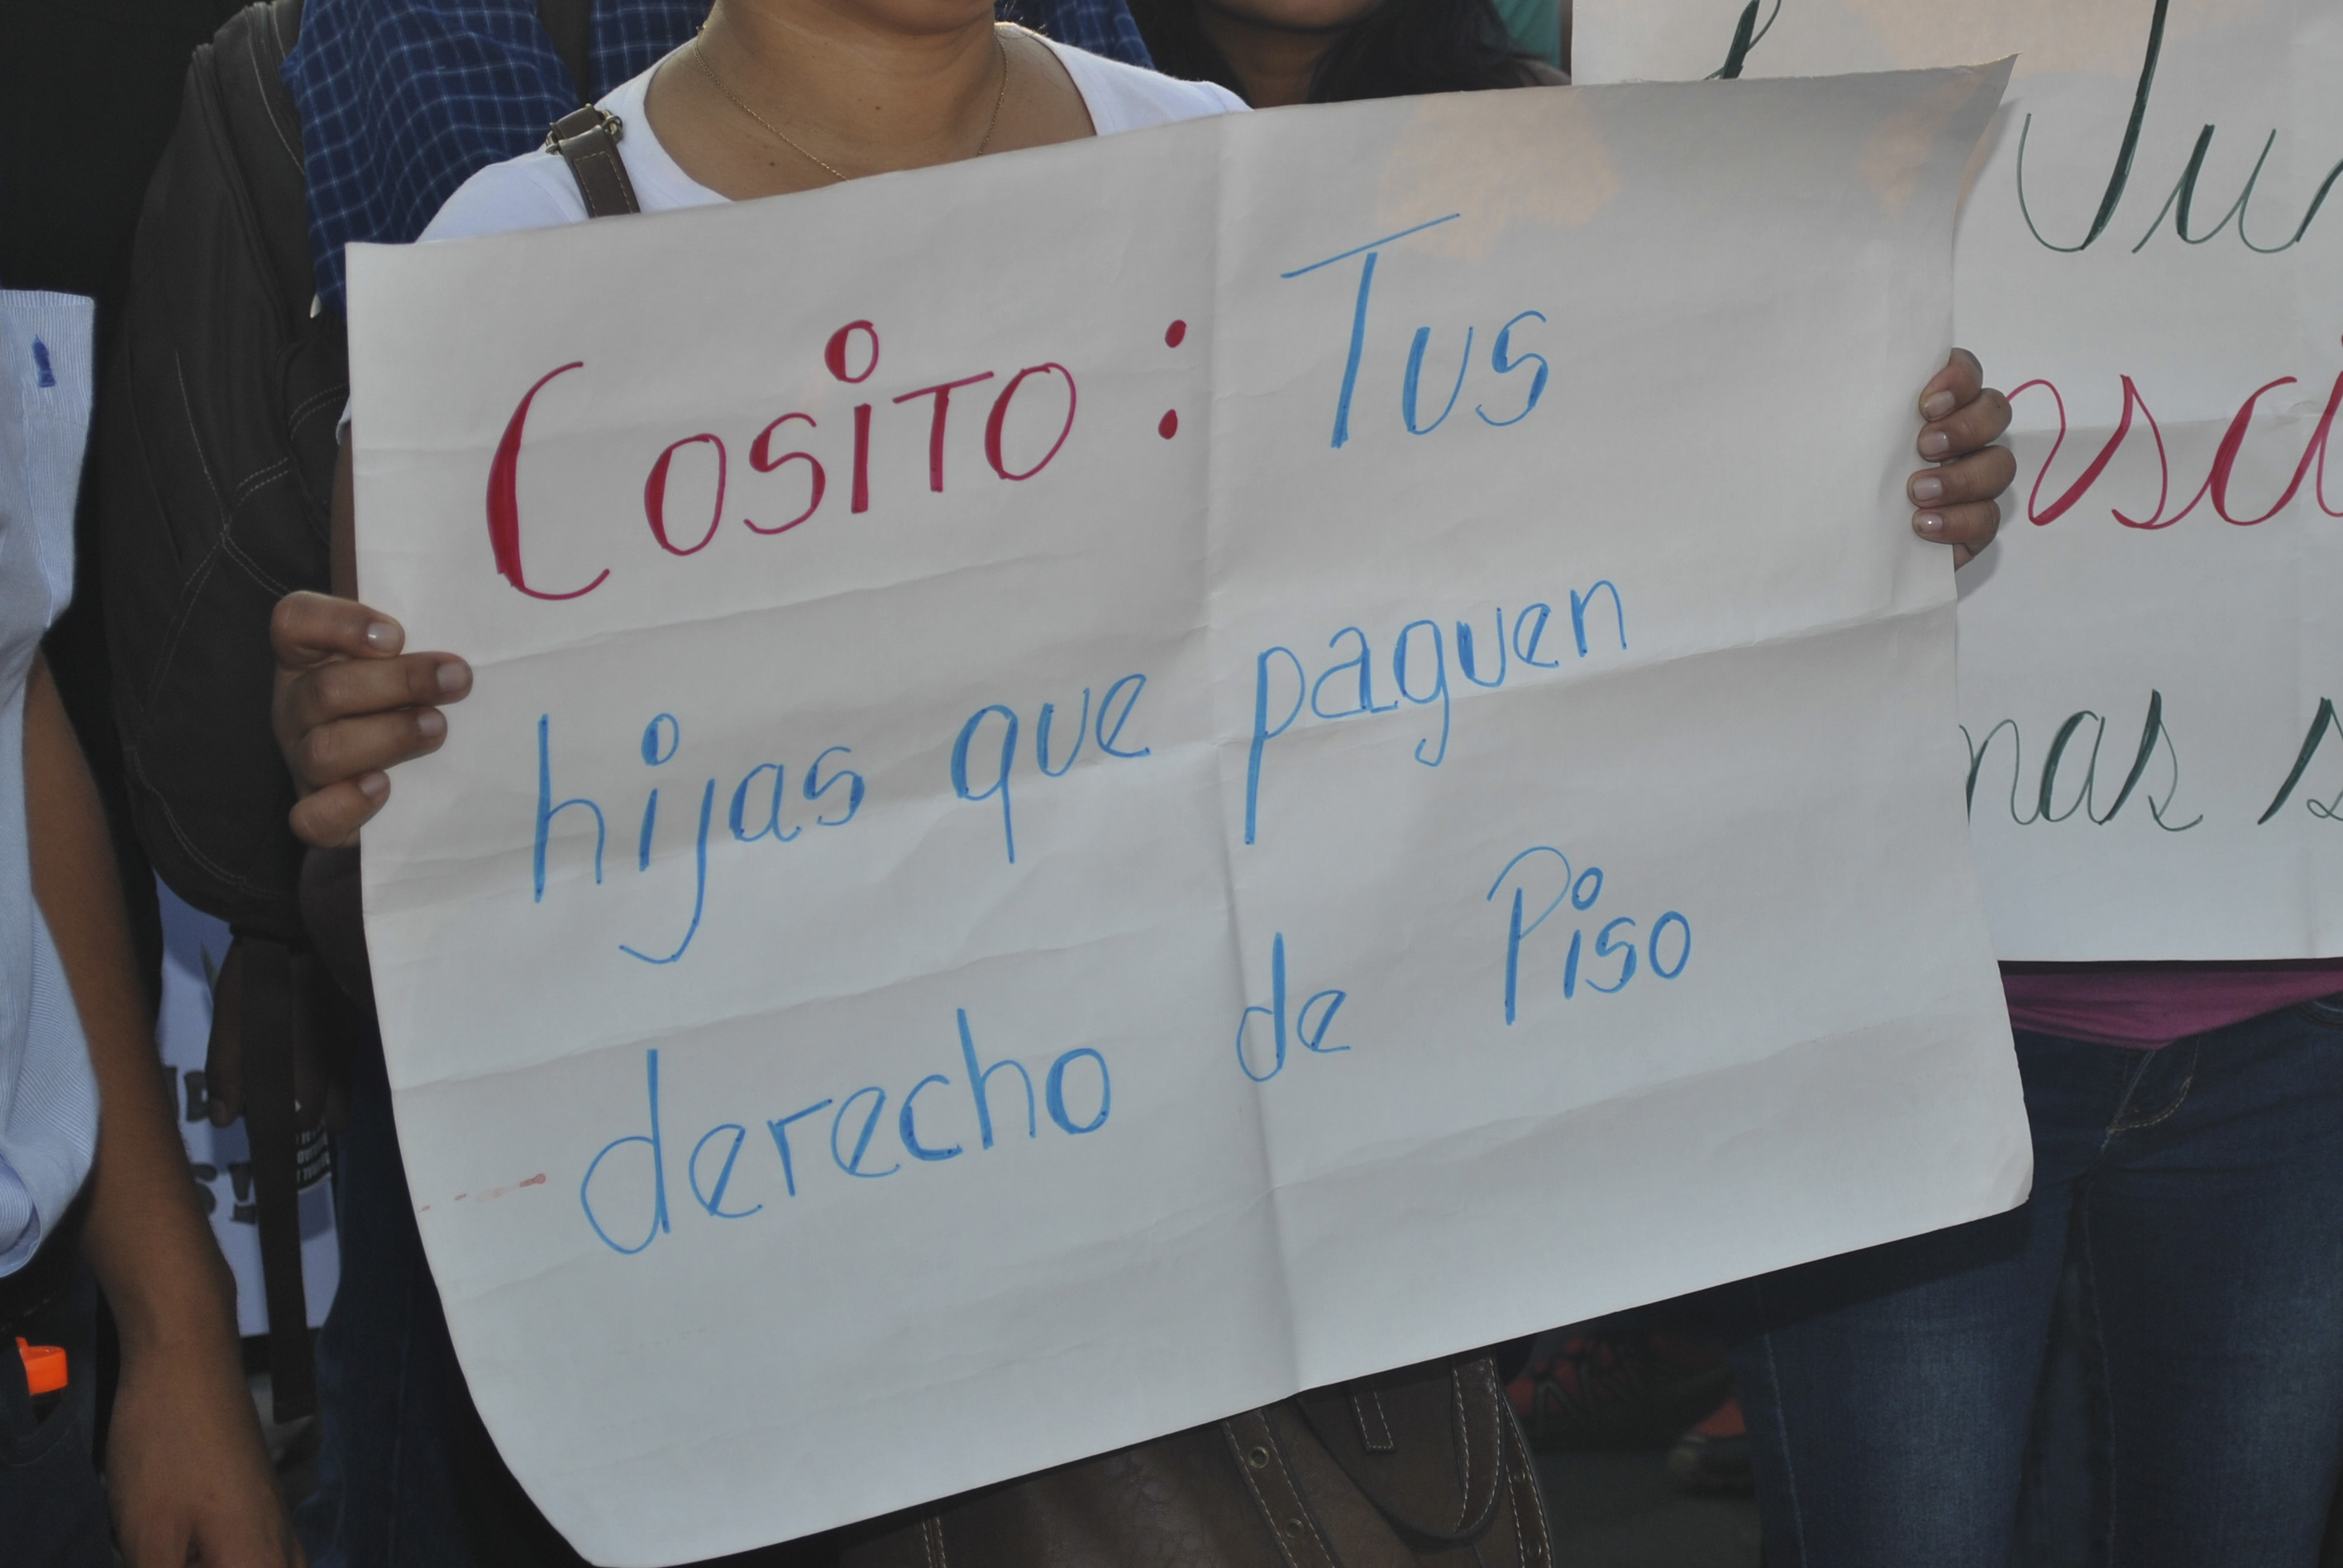 Cosito: Tus
hijas que paguen
derecho de Piso
nas